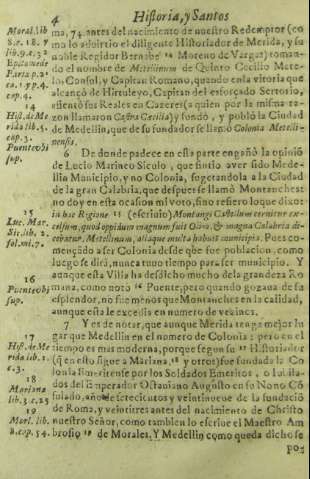 4 Historia, y Santos
Moral. lib
8. c. 18. y
lib. 9. c. 32
Epitome de
cap. 4.
14
Hist. de Me
rida lib. 5.
cap. 3.
Puente vbi
sup.
15
Luc. Mar.
Sic. lib. 2.
fol. mi. 7.
16
Puente vbi
sup.
17
Hist. de Me
rida lib. 2.
18
Mariana
lib. 3. c. 25
19
Morl. lib.
8. cap. 54.
ma, 74. antes del nacimiento de nuestro Redemptor (co
mo lo advirtio el diligente Historiador de Merida, y su
noble Regidor Bernabè Moreno de Vargas) toman-
do el nombre de Metellinum de Quinto Cecilio Mete-
lo, Consul, y Capitan Romano, quando en la vitoria que
alcançò de Hirtuleyo, Capitan del esforçado Sertorio,
assentò sus Reales en Cazeres (a quien por la misma ra-
zon llamaron Castra Cecilia) y fundò, y poblò la Ciudad
de Medellin, que de su fundador se llamò Colonia Metelli-
nensis.
6 De donde padece en esta parte engaño la opinió
de Lucio Marineo Siculo, que quiso aver sido Mede-
llin Municipio, y no Colonia, sugetandola a la Ciudad
de la gran Calabria, que despues se llamò Montanches:
no doy en esta ocasion mi voto, solo refiero lo que dixo:
in hac Regione 15 (escriuio) Montangi Castellum cernitur ex-
celsum, quod oppidum magnum fuit olim, & magna Calabria di-
cebatur. Metellinum, aliaque multa habuit municipia. Pues co-
mençado a ser Colonia desde que fue poblacion, como
luego se dirà, nunca tuuo tiempo para ser municipio. Y
aunque esta Villa ha desdicho mucho de la grandeza Ro
mana, como notò 16 Puente, pero quando gozaua de su
esplendor, no fue menos que Montanches en la calidad,
aunque esta le excediesse en numero de vezinos.
7 Y es de notar, que aunque Merida tenga mejor lu
gar que Medellin en el numero de Colonia; pero en el
tiempo es mas moderna, porque segun su 17 Historiador
(q̃ en esto sigue a Mariana, 18 y otros) fue fundada la Co
lonia Emeritense por los Soldados Emeritos, o jubila-
dos del Emperador Octauiano Augusto en su Nono Có
sulado, año de setecientos y veintinueue de la fundació
de Roma, y veintitres antes del nacimiento de Christo
nuestro Señor, como tambien lo escriue el Maestro Am
brosio 19 de Morales. Y Medellin como queda dicho se
po-